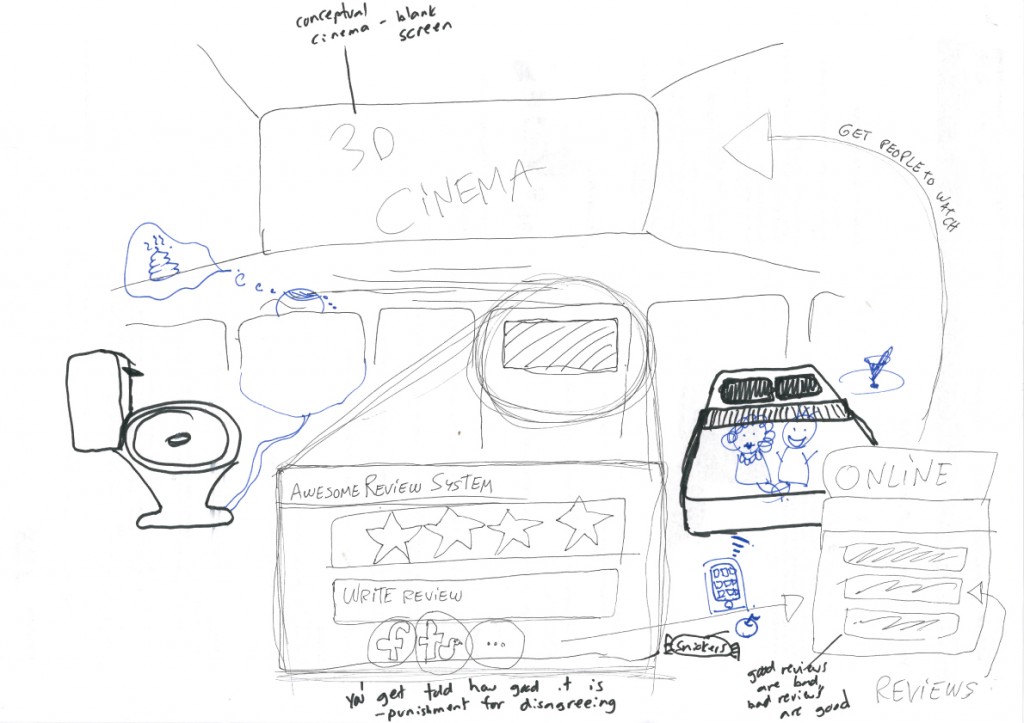 conceptual
cinema - blank
screen
3D
CINEMA
GET PEOPLE TO WATCH
AWESOME REVIEW SYSTEM
WRITE REVIEW
f
...
ONLINE
Snickers
You get told how good it is
- punishment for disagreeing
good reviews
are bad,
bad reviews
are good
REVIEWS